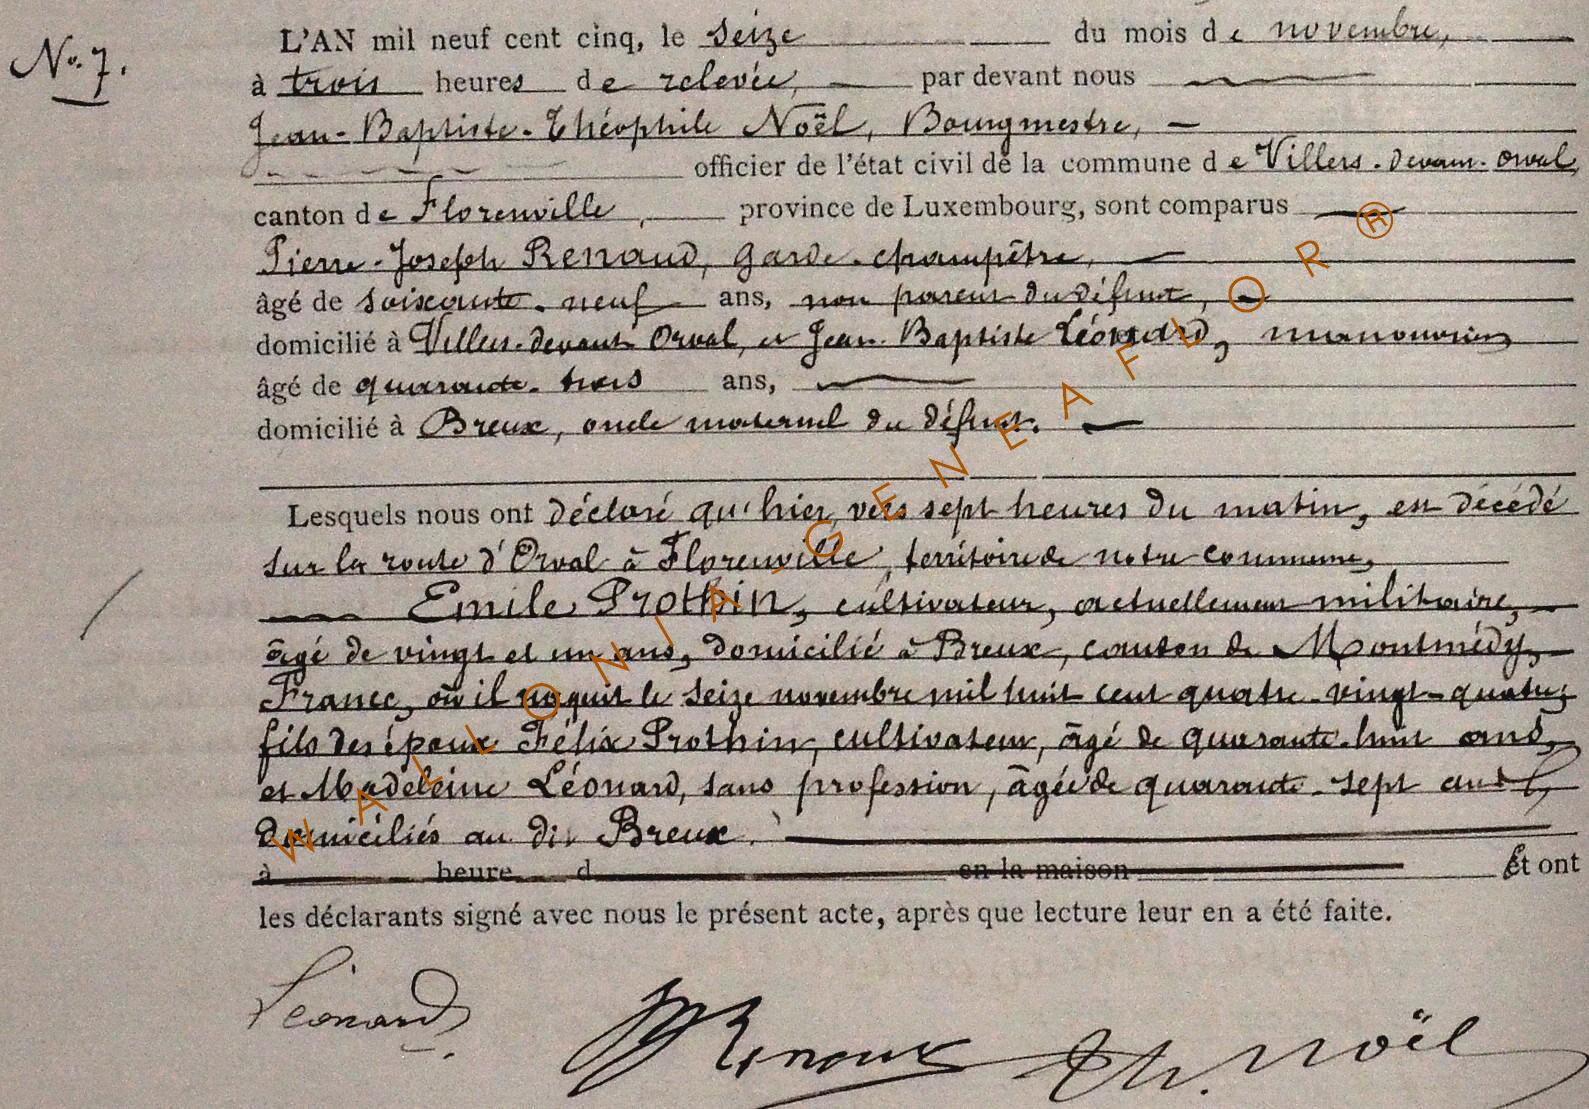 No. 7.
L'AN mil neuf cent cinq, le seize du mois de novembre,
à trois heures de relevée, par devant nous
Jean-Baptiste-Théophile Noël, Bourgmestre,
officier de l'état civil de la commune de Villers-devant-Orval,
canton de Florenville, province de Luxembourg, sont comparus
Pierre-Joseph Renaud, garde-champêtre,
âgé de soixante-neuf ans, non parent du défunt,
domicilié à Villers-devant-Orval, et Jean-Baptiste Léonard, manouvrier
âgé de quarante-trois ans,
domicilié à Breux, oncle maternel du défunt.
Lesquels nous ont déclaré qu'hier, vers sept heures du matin, est décédé
sur la route d'Orval à Florenville, territoire de notre commune,
Emile Prothin, cultivateur, actuellement militaire,
âgé de vingt et un ans, domicilié à Breux, canton de Montmédy,
France, où il naquit le seize novembre mil huit cent quatre-vingt-quatre,
fils des époux Félix Prothin, cultivateur, âgé de quarante-huit ans,
et Madeleine Léonard, sans profession, âgée de quarante-sept ans,
domiciliés au dit Breux.
à heure d en la maison Et ont
les déclarants signé avec nous le présent acte, après que lecture leur en a été faite.
Léonard Renaud Th. Noël
WALLONIA-GENEAFLOR®